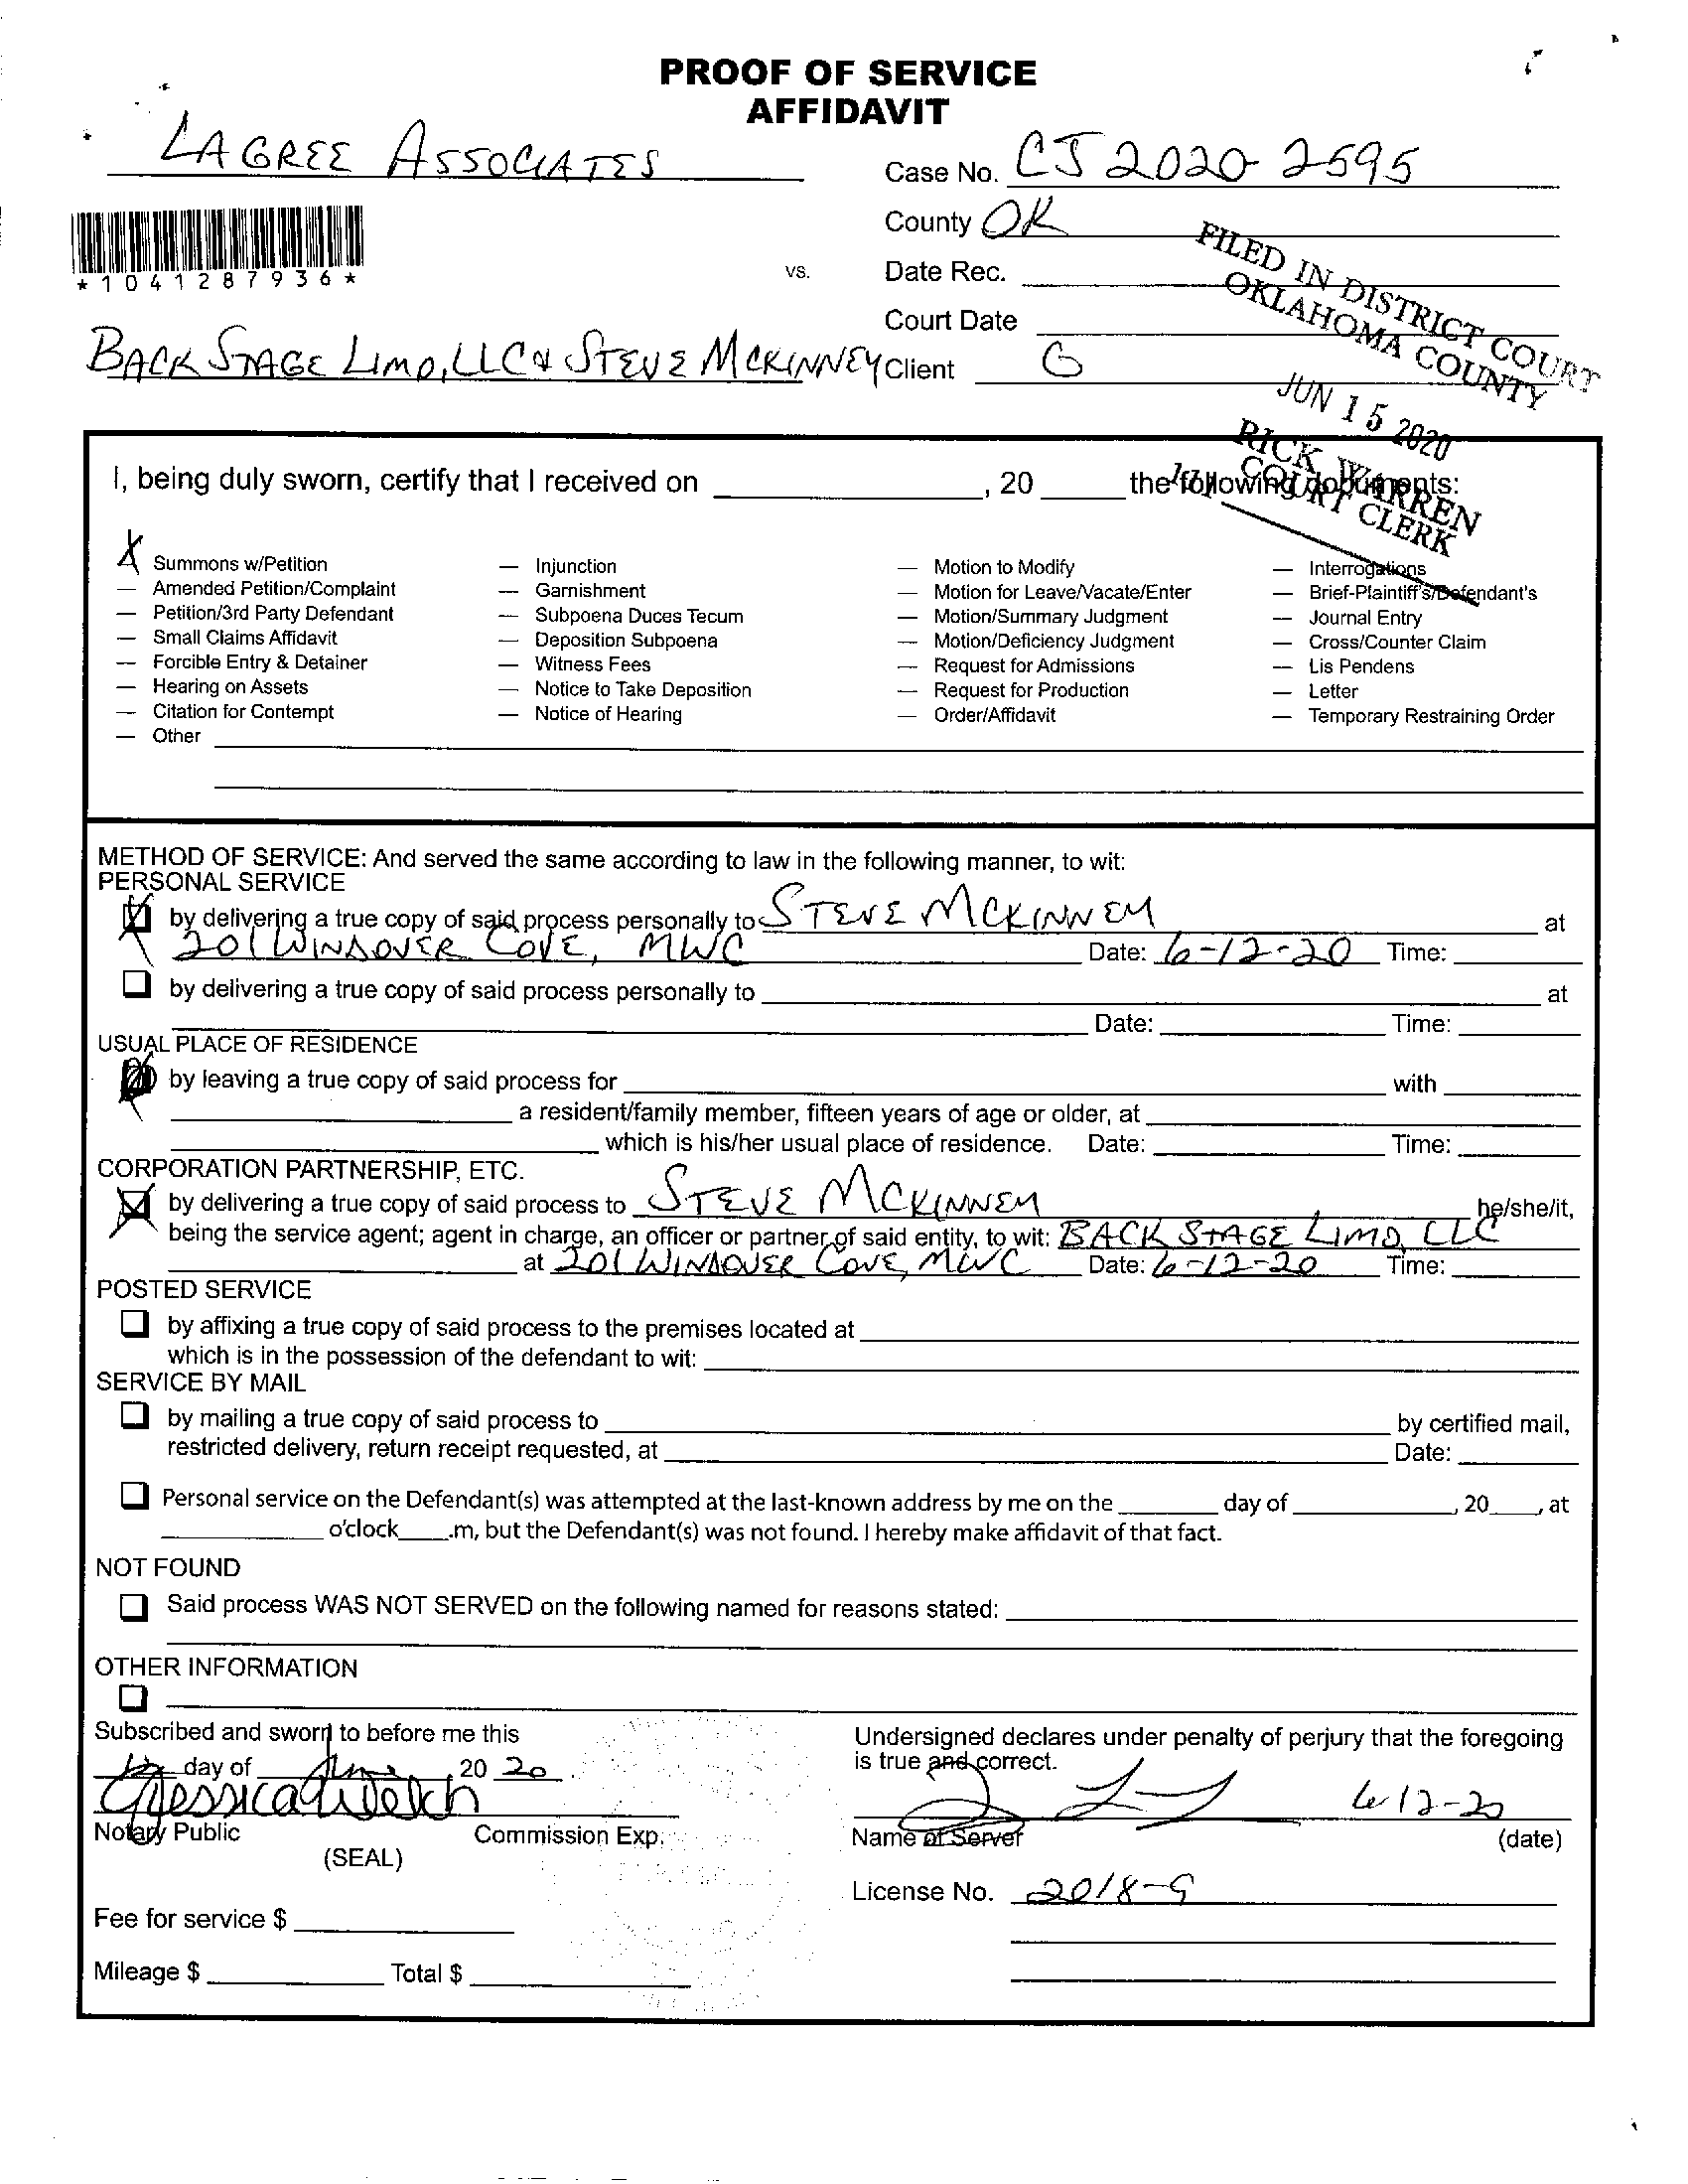 PROOF OF SERVICE
AFFIDAVIT
LAGREE ASSOCIATES
Case No. CJ 2020-2595
County OK
*1041287936*
vs.
Date Rec.
Court Date
BACK STAGE LIMO, LLC & STEVE MCKINNEY Client G
FILED IN DISTRICT COURT
OKLAHOMA COUNTY
JUN 15 2020
RICK WARREN
COURT CLERK
I, being duly sworn, certify that I received on , 20 the following documents:
X Summons w/Petition
— Amended Petition/Complaint
— Petition/3rd Party Defendant
— Small Claims Affidavit
— Forcible Entry & Detainer
— Hearing on Assets
— Citation for Contempt
— Other
— Injunction
— Garnishment
— Subpoena Duces Tecum
— Deposition Subpoena
— Witness Fees
— Notice to Take Deposition
— Notice of Hearing
— Motion to Modify
— Motion for Leave/Vacate/Enter
— Motion/Summary Judgment
— Motion/Deficiency Judgment
— Request for Admissions
— Request for Production
— Order/Affidavit
— Interrogations
— Brief-Plaintiff's/Defendant's
— Journal Entry
— Cross/Counter Claim
— Lis Pendens
— Letter
— Temporary Restraining Order
METHOD OF SERVICE: And served the same according to law in the following manner, to wit:
PERSONAL SERVICE
by delivering a true copy of said process personally to STEVE MCKINNEY at
201 WINDOVER COVE, MWC Date: 6-12-20 Time:
by delivering a true copy of said process personally to at
Date: Time:
USUAL PLACE OF RESIDENCE
by leaving a true copy of said process for with
a resident/family member, fifteen years of age or older, at
which is his/her usual place of residence. Date: Time:
CORPORATION PARTNERSHIP, ETC.
by delivering a true copy of said process to STEVE MCKINNEY he/she/it,
being the service agent; agent in charge, an officer or partner of said entity, to wit: BACK STAGE LIMO, LLC
at 201 WINDOVER COVE, MWC Date: 6-12-20 Time:
POSTED SERVICE
by affixing a true copy of said process to the premises located at
which is in the possession of the defendant to wit:
SERVICE BY MAIL
by mailing a true copy of said process to by certified mail,
restricted delivery, return receipt requested, at Date:
Personal service on the Defendant(s) was attempted at the last-known address by me on the day of , 20 , at
o'clock .m, but the Defendant(s) was not found. I hereby make affidavit of that fact.
NOT FOUND
Said process WAS NOT SERVED on the following named for reasons stated:
OTHER INFORMATION
Subscribed and sworn to before me this
12 day of June , 20 20 .
Jessica Welch
Notary Public Commission Exp.
(SEAL)
Fee for service $
Mileage $ Total $
Undersigned declares under penalty of perjury that the foregoing
is true and correct.
6-12-20
Name of Server (date)
License No. 2018-9